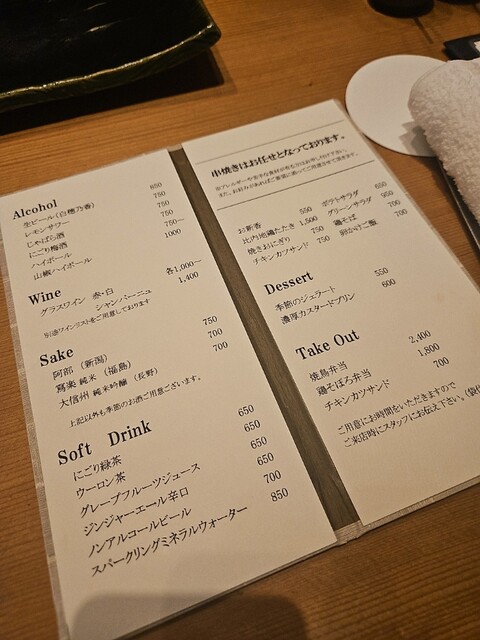 Alcohol
生ビール(白穂乃香) 850
レモンサワー 750
じゃばら酒 750
にごり梅酒 750
ハイボール 750〜
山椒ハイボール 1000
Wine
グラスワイン 赤・白 各1,000〜
シャンパーニュ 1,400
別途ワインリストをご用意しております
Sake
阿部(新潟) 750
寫楽 純米(福島) 700
大信州 純米吟醸(長野) 700
上記以外も季節のお酒ご用意ございます。
Soft Drink
にごり緑茶 650
ウーロン茶 650
グレープフルーツジュース 650
ジンジャーエール辛口 650
ノンアルコールビール 700
スパークリングミネラルウォーター 850
串焼きはお任せとなっております。
※アレルギーや苦手な食材が有る方はお申し付け下さい。
また、お好みがあればご要望に添ってご用意させて頂きます。
お新香 550 ポテトサラダ 650
比内地鶏たたき 1,500 グリーンサラダ 950
焼きおにぎり 750 鶏そば 700
チキンカツサンド 750 卵かけご飯 700
Dessert
季節のジェラート 550
濃厚カスタードプリン 600
Take Out
焼鳥弁当 2,400
鶏そぼろ弁当 1,800
チキンカツサンド 700
ご用意にお時間をいただきますので
ご来店時にスタッフにお伝え下さい。(袋代